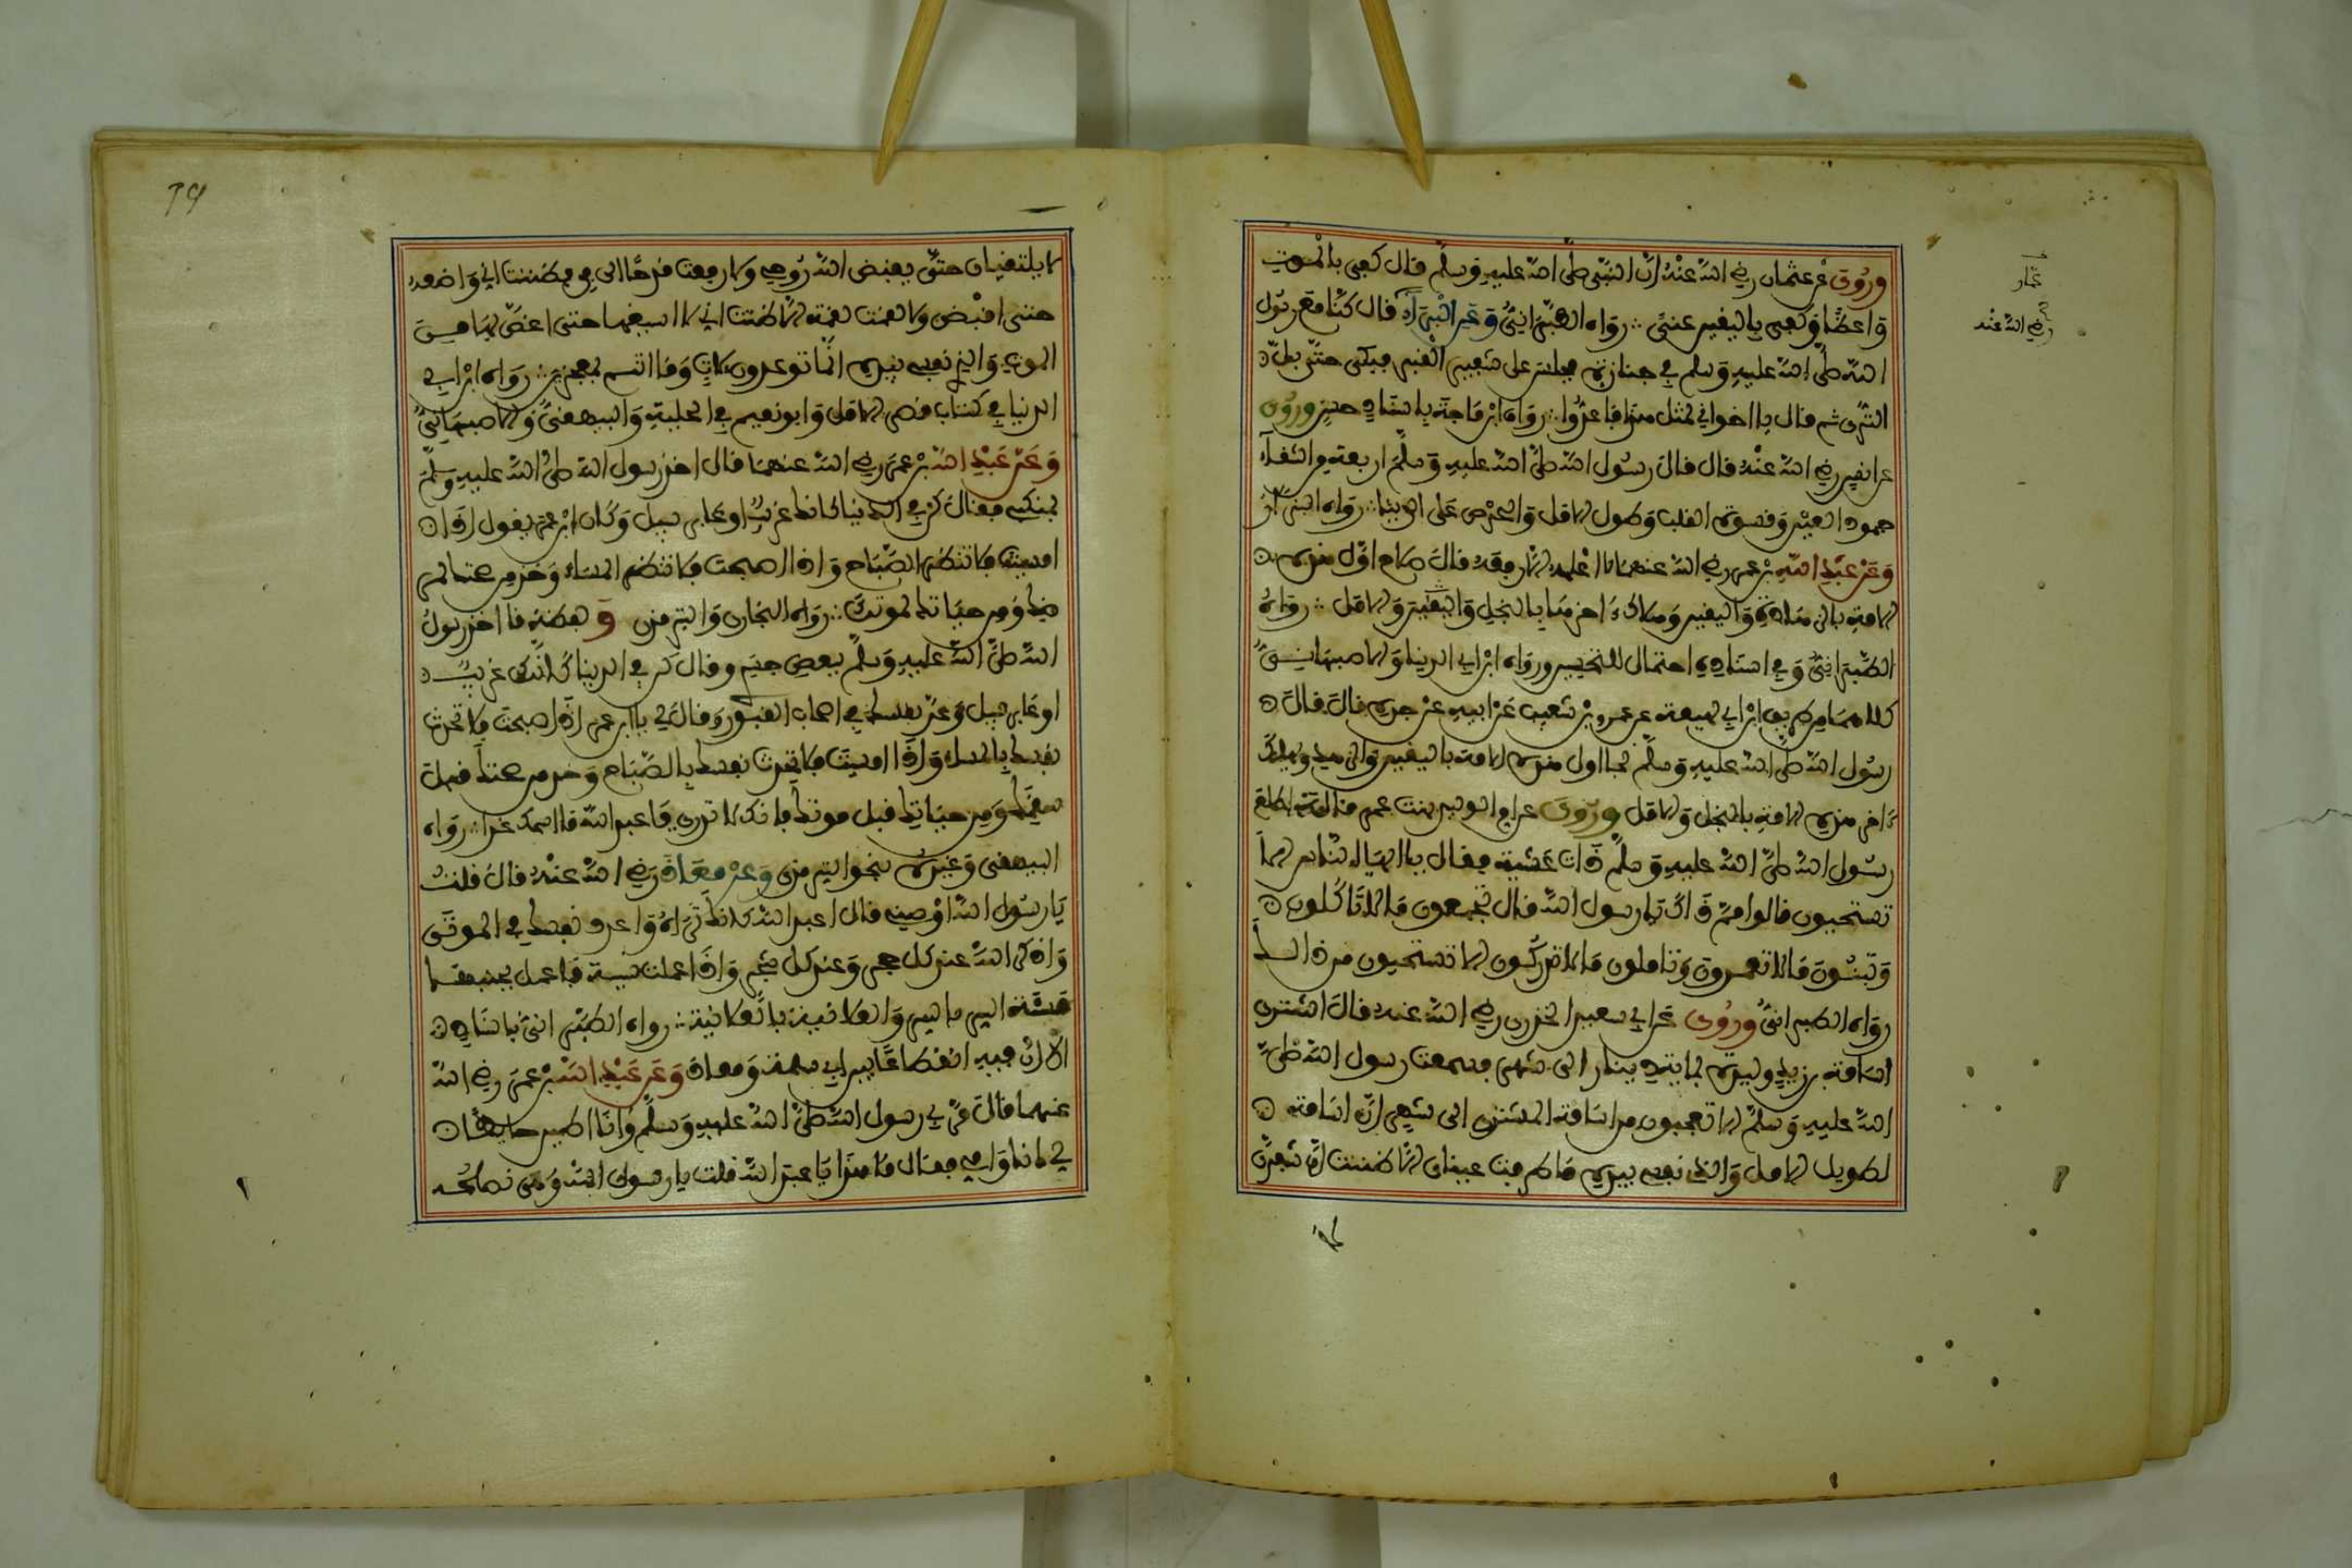 وروي عن عثمان رضي الله عنه ان النبي صلى الله عليه وسلم قال كفى بالموت
واعظا وكفى باليقين غنى رواه الطبراني وعن البراء قال كنا مع رسول
الله صلى الله عليه وسلم في جنازة فجلس على شفير القبر فبكى حتى بل
الثرى ثم قال يا اخواني لمثل هذا فاعدوا رواه ابن ماجة باسناد حسن وروي
عن انس رضي الله عنه قال قال رسول الله صلى الله عليه وسلم اربعة من الشقاء
جمود العين وقسوة القلب وطول الامل والحرص على الدنيا رواه البزار
وعن عبد الله بن عمر رضي الله عنهما لا اعلمه الا رفعه قال صلاح اول هذه
الامة بالزهادة واليقين وهلاك ءاخرها بالبخل والامل رواه
الطبراني وفي اسناده احتمال للتحسين ورواه ابن ابي الدنيا والاصبهاني
كلاهما من طريق ابن ابي لهيعة عن عمرو بن شعيب عن ابيه عن جده قال قال
رسول الله صلى الله عليه وسلم نجا اول هذه الامة باليقين والزهد ويهلك
ءاخر هذه الامة بالبخل والامل وروي عن ام الوليد بنت عمر قالت اطلع
رسول الله صلى الله عليه وسلم ذات عشية فقال يا ايها الناس الا
تستحيون قالوا مم ذاك يا رسول الله قال تجمعون ما لا تاكلون
وتبنون ما لا تعمرون وتاملون ما لا تدركون الا تستحيون من ذلك
رواه الطبراني وروي عن ابي سعيد الخدري رضي الله عنه قال اشترى
اسامة بن زيد وليدة بماية دينار الى شهر فسمعت رسول الله صلى
الله عليه وسلم الا تعجبون من اسامة المشتري الى شهر ان اسامة
لطويل الامل والذي نفسي بيده ما طرفت عيناي الا ظننت ان شفري
لا
عمار
رضي الله عنه
لا يلتقيان حتى يقبض الله روحي ولا رفعت قدحا الى في فظننت اني واضعه
حتى اقبض ولا لقمت لقمة الا ظننت اني لا اسيغها حتى اغص بها من
الموت والذي نفسي بيده انما توعدون لات وما انتم بمعجزين رواه ابن ابي
الدنيا في كتاب قصر الامل وابو نعيم في الحلية والبيهقي والاصبهاني
وعن عبد الله بن عمر رضي الله عنهما قال اخذ رسول الله صلى الله عليه وسلم
بمنكبي فقال كن في الدنيا كانك غريب او عابر سبيل وكان ابن عمر يقول اذا
امسيت فلا تنتظر الصباح واذا اصبحت فلا تنتظر المساء وخذ من صحتك لمر
ضك ومن حياتك لموتك رواه البخاري والترمذي ولفظه قال اخذ رسول
الله صلى الله عليه وسلم ببعض جسدي وقال كن في الدنيا كانك غريب
او عابر سبيل وعد نفسك في اصحاب القبور وقال لي يا ابن عمر اذا اصبحت فلا تحدث
نفسك بالمساء واذا امسيت فلا تحدث نفسك بالصباح وخذ من صحتك قبل
سقمك ومن حياتك قبل موتك فانك لا تدري يا عبد الله ما اسمك غدا رواه
البيهقي وغيره نحو الترمذي وعن معاذ رضي الله عنه قال قلت
يا رسول الله اوصني قال اعبد الله كانك تراه واعدد نفسك في الموتى
واذكر الله عند كل حجر وعند كل شجر واذا عملت سيئة فاعمل بجنبها
حسنة السر بالسر والعلانية بالعلانية رواه الطبراني باسناد
الا ان فيه انقطاعا بين ابي سلمة ومعاذ وعن عبد الله بن عمر رضي الله
عنهما قال مر بي رسول الله صلى الله عليه وسلم وانا اطين حايطا
لي انا وامي فقال ما هذا يا عبد الله قلت يا رسول الله وهى نصلحه